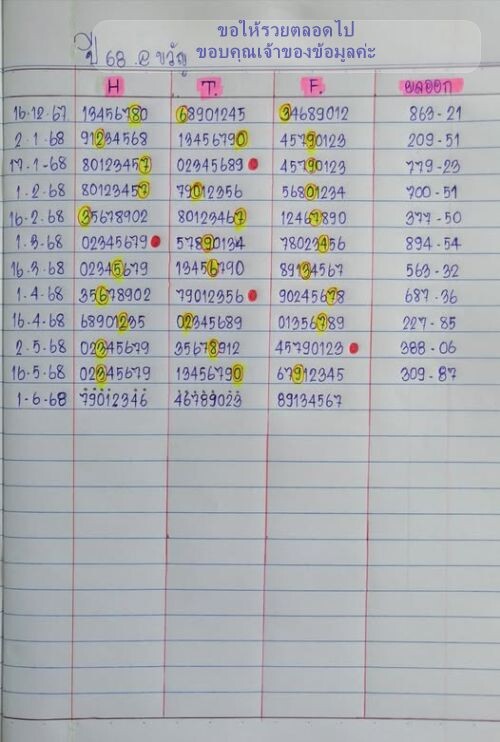 ขอให้รวยตลอดไป
ขอบคุณเจ้าของข้อมูลค่ะ
ปี 68 @ ขวัญ
H T. F. ผลออก
16-12-67 13456780 68901245 34689012 863-21
2-1-68 91234568 13456790 45790123 209-51
17-1-68 80123457 02345689 45790123 779-23
1-2-68 80123457 79012356 56801234 700-51
16-2-68 35678902 80123467 12467890 377-50
1-3-68 02345679 57890134 78023456 894-54
16-3-68 02345679 13456790 89134567 563-32
1-4-68 35678902 79012356 90245678 687-36
16-4-68 68901235 02345689 01356789 227-85
2-5-68 02345679 35678912 45790123 388-06
16-5-68 02345679 13456790 67912345 309-87
1-6-68 79012346 46789023 89134567